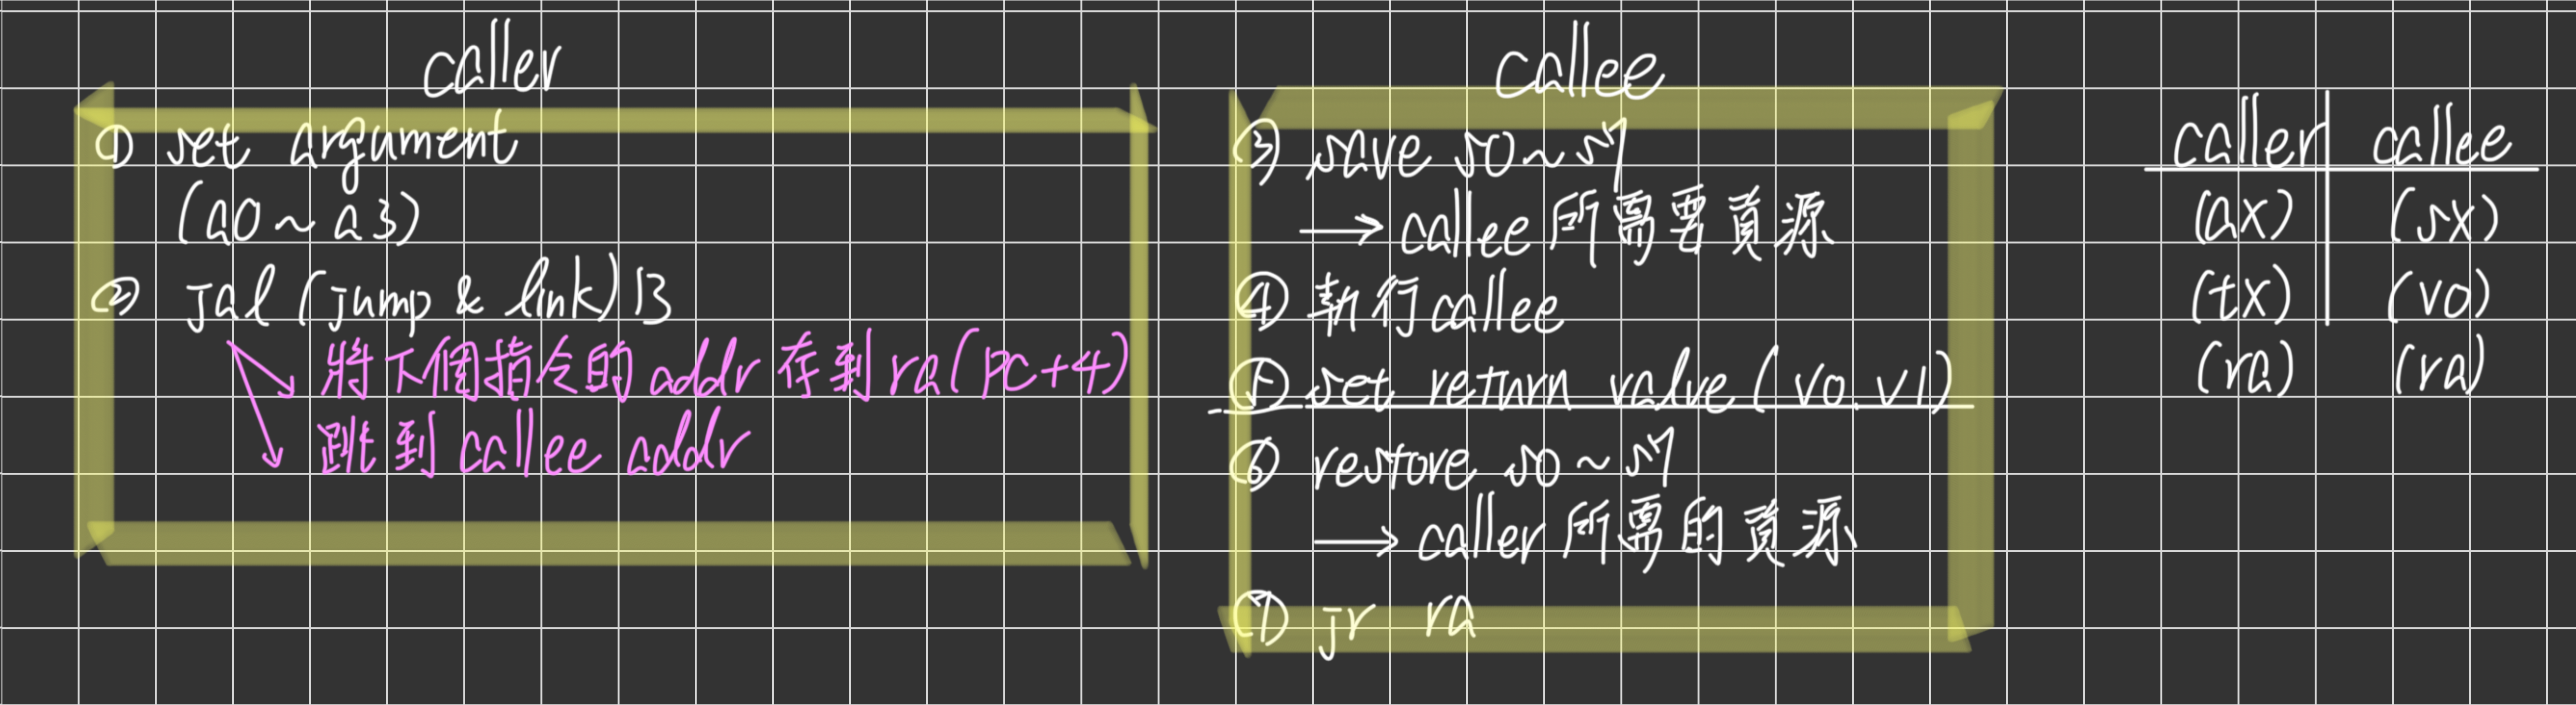 caller
① set argument
(a0 ~ a3)
② jal (jump & link) B
將下個指令的 addr 存到 ra (PC+4)
跳到 callee addr
callee
③ save s0 ~ s7
→ callee 所需要資源
④ 執行 callee
⑤ set return value (v0. v1)
⑥ restore s0 ~ s7
→ caller 所需的資源
⑦ jr ra
caller callee
(ax) (sx)
(tx) (v0)
(ra) (ra)